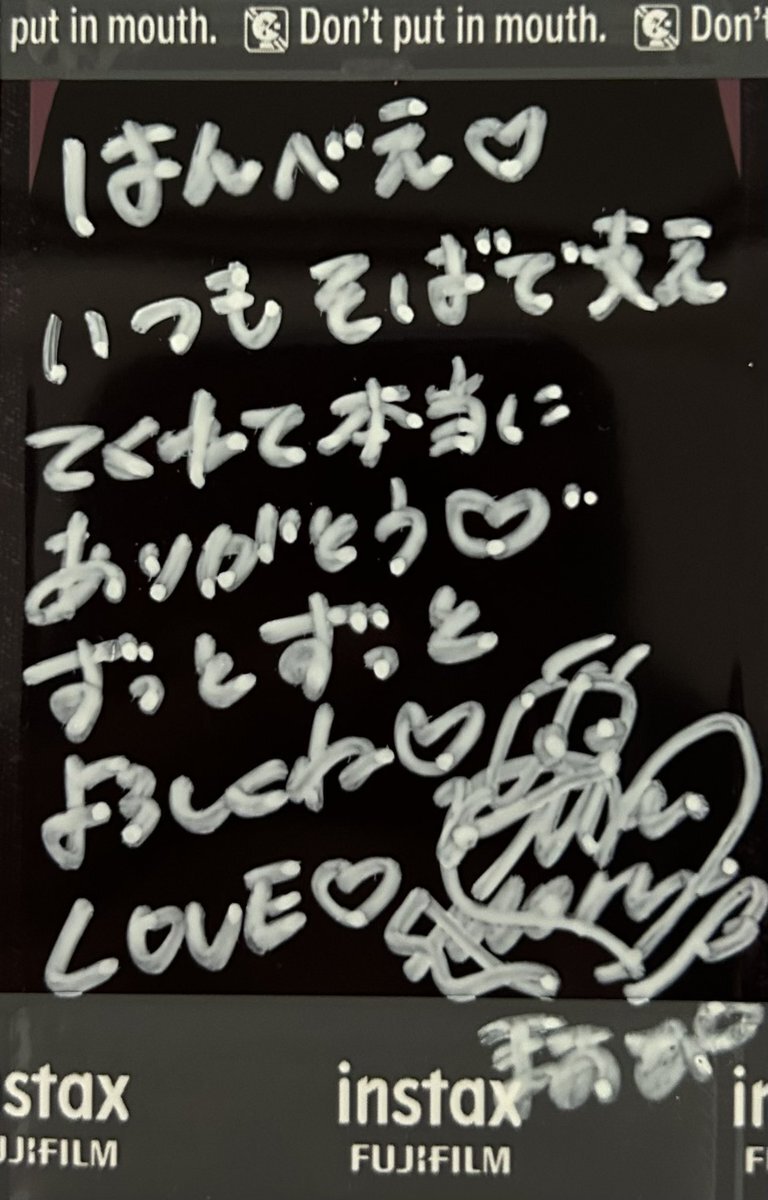 put in mouth. Don't put in mouth. Don't
はんべえ♡
いつもそばで支え
てくれて本当に
ありがとう♡¨
ずっとずっと
よろしくね♡
LOVE♡
stax instax in
FUJIFILM FUJIFILM F